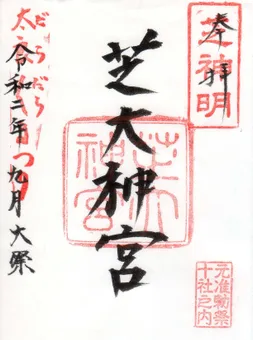 奉拝
芝神明
芝大神宮
芝大神宮
元准勅祭
十社之内
だらだら
太
まつり
令和二年九月大祭